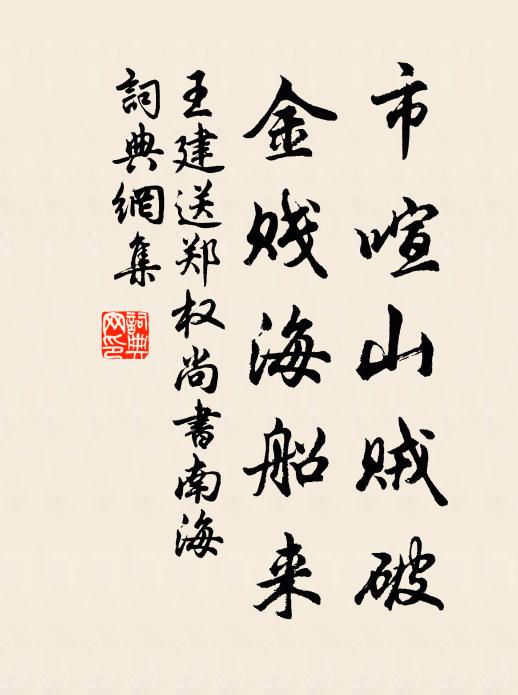 市喧山贼破
金贱海船来
王建送郑权尚书南海
詞典網集
詞典
网印